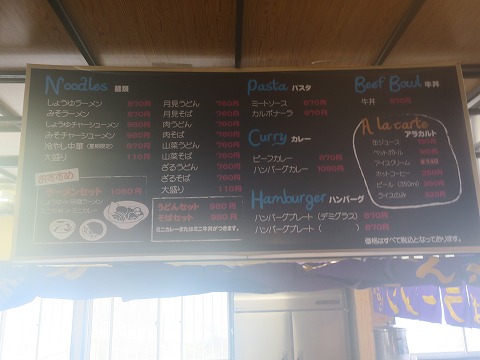 Noodles 麺類
しょうゆラーメン 870円
みそラーメン 870円
しょうゆチャーシューメン 980円
みそチャーシューメン 980円
冷やし中華(夏期限定) 870円
大盛り 110円
おすすめ
ラーメンセット 1080円
月見うどん 760円
月見そば 760円
肉うどん 760円
肉そば 760円
山菜うどん 760円
山菜そば 760円
ざるうどん 760円
ざるそば 760円
大盛り 110円
うどんセット 980円
そばセット 980円
ミニカレーまたはミニ牛丼がつきます。
Pasta パスタ
ミートソース 870円
カルボナーラ 870円
Curry カレー
ビーフカレー 870円
ハンバーグカレー 1080円
Hamburger ハンバーグ
ハンバーグプレート(デミグラス) 870円
ハンバーグプレート( ) 870円
Beef Bowl 牛丼
牛丼 870円
A la carte
アラカルト
缶ジュース
ペットボトル
アイスクリーム
ホットコーヒー
ビール(350ml)
ライスのみ
価格はすべて税込となっております。